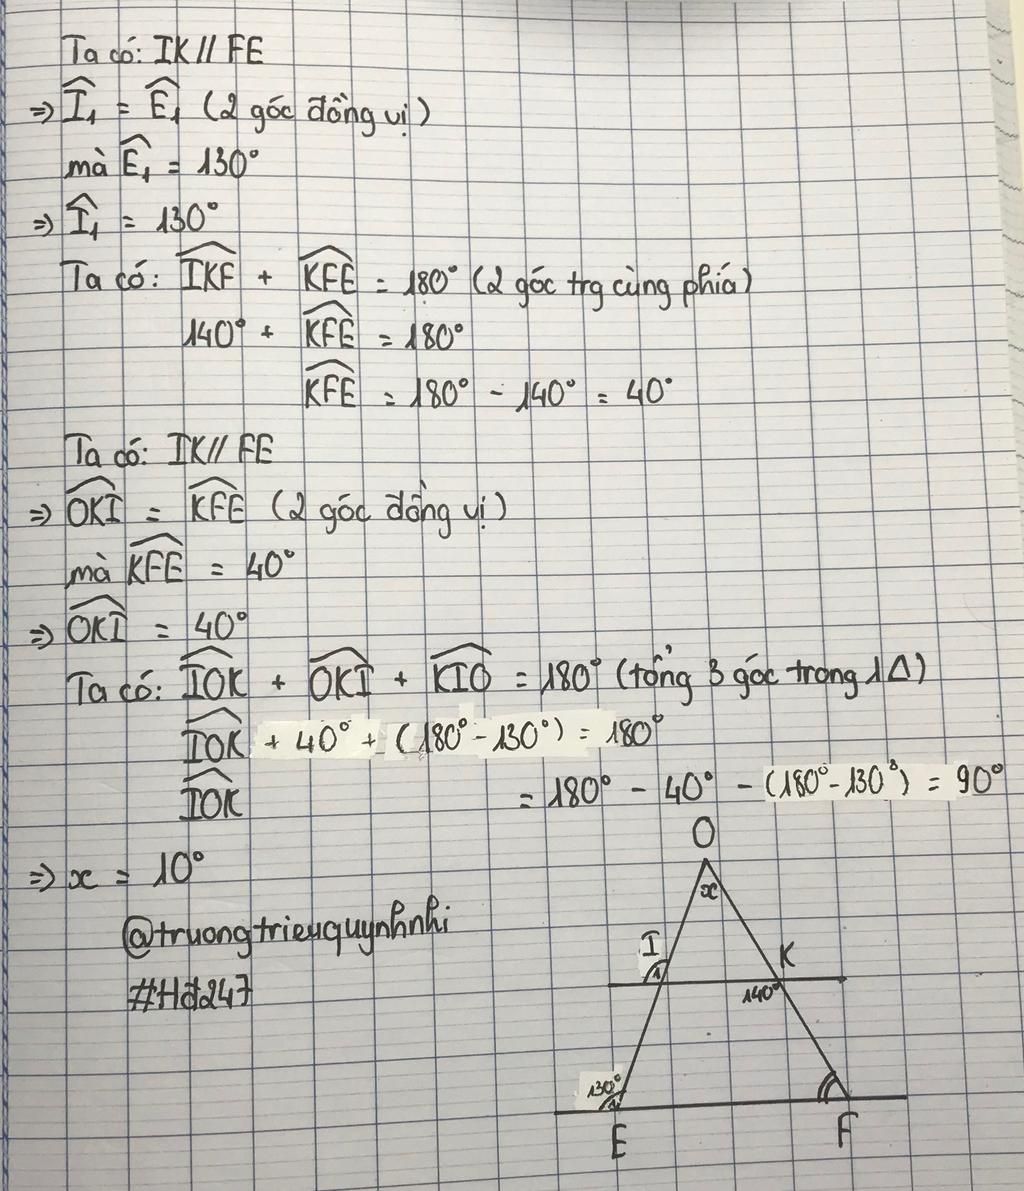 Ta có: IK // FE
=> Î₁ = Ê₁ (2 góc đồng vị)
mà Ê₁ = 130°
=> Î₁ = 130°
Ta có: IKF + KFE = 180° (2 góc trg cùng phía)
140° + KFE = 180°
KFE = 180° - 140° = 40°
Ta có: IK // FE
=> OKI = KFE (2 góc đồng vị)
mà KFE = 40°
=> OKI = 40°
Ta có: IOK + OKI + KIO = 180° (tổng 3 góc trong 1Δ)
IOK + 40° + (180° - 130°) = 180°
IOK = 180° - 40° - (180° - 130°) = 90°
=> x = 10°
@truongtrieuquynhnhi
#Hđ247
O
x
I
1
K
140°
130°
1
E
F